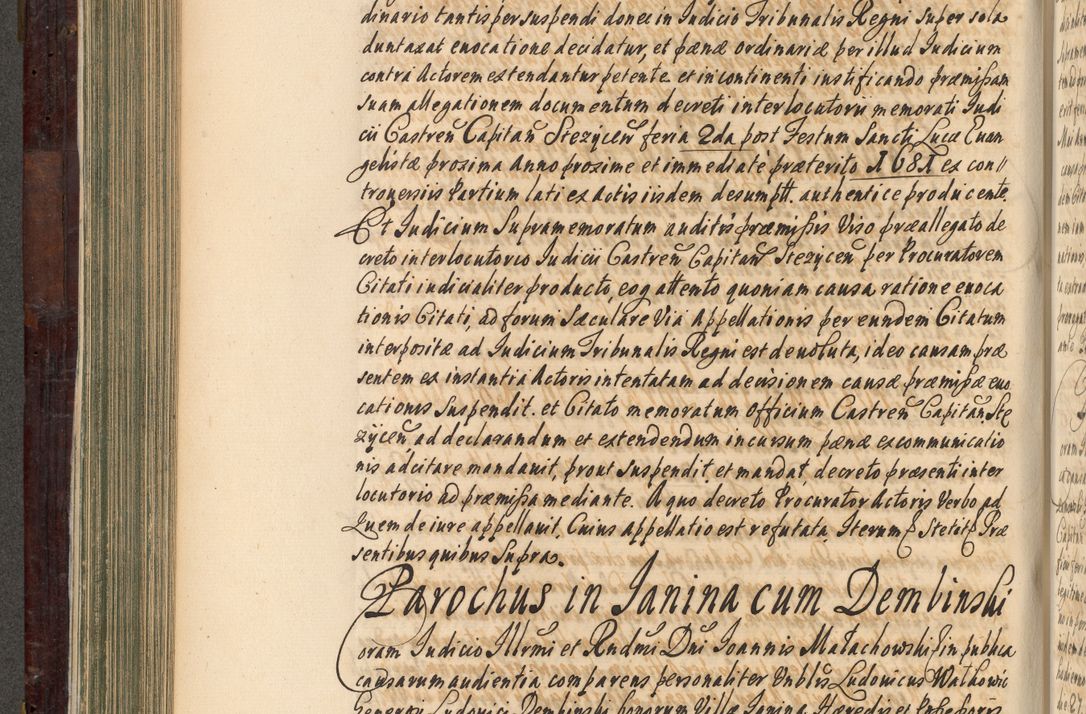 dinario tantisper suspendi donec in Judicio Tribunalis Regni super sola
duntaxat euocatione decidatur, et pænæ ordinariæ per illud Judicium
contra Actorem extendantur petente. et in continenti iustificando præmissam
suam allegationem documentum decreti interlocutorii memorati Judi
cii Castren̄ Capitan̄ Stezÿcen̄ feria 2da post Festum Sancti Lucæ Euan
gelistæ proxima Anno proxime et immediate præterito 1681 ex con//
trouersiis Partium lati ex Actis iisdem desumptt. authentice producente.
Et Judicium Supramemoratum auditis præmissis Viso præallegato de
creto interlocutorio Judicii Castren̄ Capitan̄ Stezÿcen̄ per Procuratorem
Citati iudicialiter producto, eoq attento quoniam causa ratione euoca
tionis Citati, ad forum sæculare Via Appellationis per eundem Citatum
interpositæ ad Judicium Tribunalis Regni est deuoluta, ideo causam præ
sentem ex instantia Actoris intentatam ad decisionem causæ præmissæ euo
cationis Suspendit. et Citato memoratum Officium Castren̄ Capitan̄. Ste
zÿcen̄ ad declarandum et extendendum incursum pænæ excommunicatio
nis adcitare mandauit, prout suspendit et mandat, decreto præsenti inter
locutorio ad præmissa mediante. A quo decreto Procurator Actoris Verbo ad
Quem de iure appellauit, Cuius appellatio est refutata Iterum Stetit Præ
sentibus quibus Supra.
Parochus in Janina cum Dembinski
Coram Judicio Illrmi et Rndmi Dni Ioannis Małachowski in publica
causarum audientia comparens personaliter Vnblis Ludouicus Walkowic
Generosi Ludouici Dembinski bonorum Villæ Janina Hæredis et Possessoris